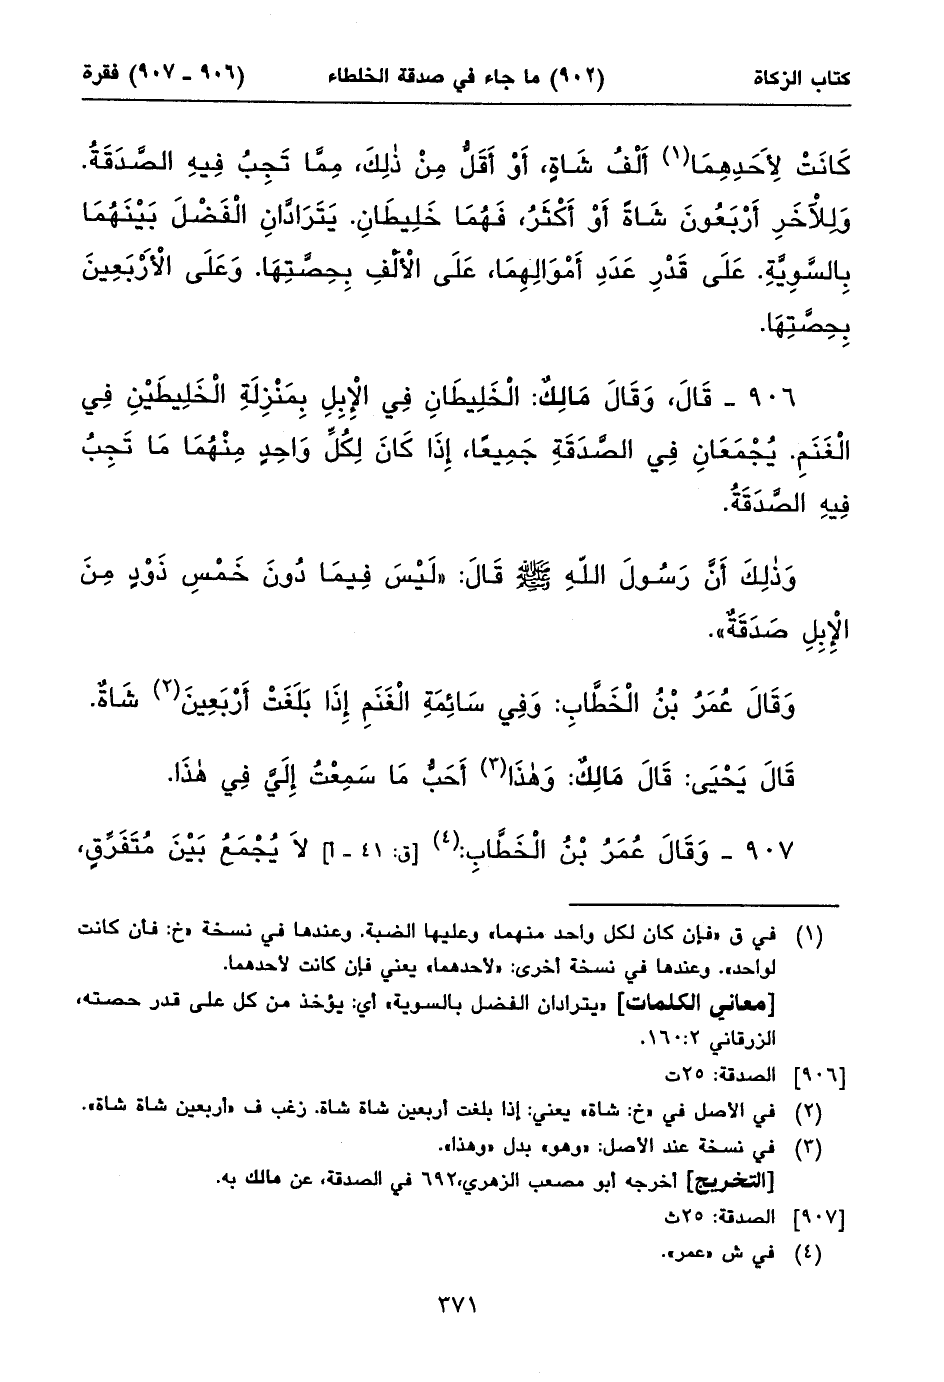 كتاب الزكاة (٩٠٢) ما جاء في صدقة الخلطاء (٩٠٦ - ٩٠٧) فقرة
كَانَتْ لِأَحَدِهِمَا(١) أَلْفُ شَاةٍ، أَوْ أَقَلُّ مِنْ ذٰلِكَ، مِمَّا تَجِبُ فِيهِ الصَّدَقَةُ.
وَلِلْآخَرِ أَرْبَعُونَ شَاةً أَوْ أَكْثَرُ، فَهُمَا خَلِيطَانِ. يَتَرَادَّانِ الْفَضْلَ بَيْنَهُمَا
بِالسَّوِيَّةِ. عَلَى قَدْرِ عَدَدِ أَمْوَالِهِمَا، عَلَى الْأَلْفِ بِحِصَّتِهَا. وَعَلَى الْأَرْبَعِينَ
بِحِصَّتِهَا.
٩٠٦ - قَالَ، وَقَالَ مَالِكٌ: الْخَلِيطَانِ فِي الْإِبِلِ بِمَنْزِلَةِ الْخَلِيطَيْنِ فِي
الْغَنَمِ. يُجْمَعَانِ فِي الصَّدَقَةِ جَمِيعًا، إِذَا كَانَ لِكُلِّ وَاحِدٍ مِنْهُمَا مَا تَجِبُ
فِيهِ الصَّدَقَةُ.
وَذٰلِكَ أَنَّ رَسُولَ اللّهِ ﷺ قَالَ: «لَيْسَ فِيمَا دُونَ خَمْسِ ذَوْدٍ مِنَ
الْإِبِلِ صَدَقَةٌ».
وَقَالَ عُمَرُ بْنُ الْخَطَّابِ: وَفِي سَائِمَةِ الْغَنَمِ إِذَا بَلَغَتْ أَرْبَعِينَ(٢) شَاةٌ.
قَالَ يَحْيَى: قَالَ مَالِكٌ: وَهٰذَا(٣) أَحَبُّ مَا سَمِعْتُ إِلَيَّ فِي هٰذَا.
٩٠٧ - وَقَالَ عُمَرُ بْنُ الْخَطَّابِ:(٤) [ق: ٤١ - أ] لاَ يُجْمَعُ بَيْنَ مُتَفَرِّقٍ،
(١) في ق «فإن كان لكل واحد منهما» وعليها الضبة. وعندها في نسخة «خ: فأن كانت
لواحد». وعندها في نسخة أخرى: «لأحدهما» يعني فإن كانت لأحدهما.
[معاني الكلمات] «يترادان الفضل بالسوية» أي: يؤخذ من كل على قدر حصته،
الزرقاني ١٦٠:٢.
[٩٠٦] الصدقة: ٢٥ت
(٢) في الأصل في «خ: شاة» يعني: إذا بلغت أربعين شاة شاة. زغب ف «أربعين شاة شاة».
(٣) في نسخة عند الأصل: «وهو» بدل «وهذا».
[التخريج] أخرجه أبو مصعب الزهري، ٦٩٢ في الصدقة، عن مالك به.
[٩٠٧] الصدقة: ٢٥ث
(٤) في ش «عمر».
٣٧١